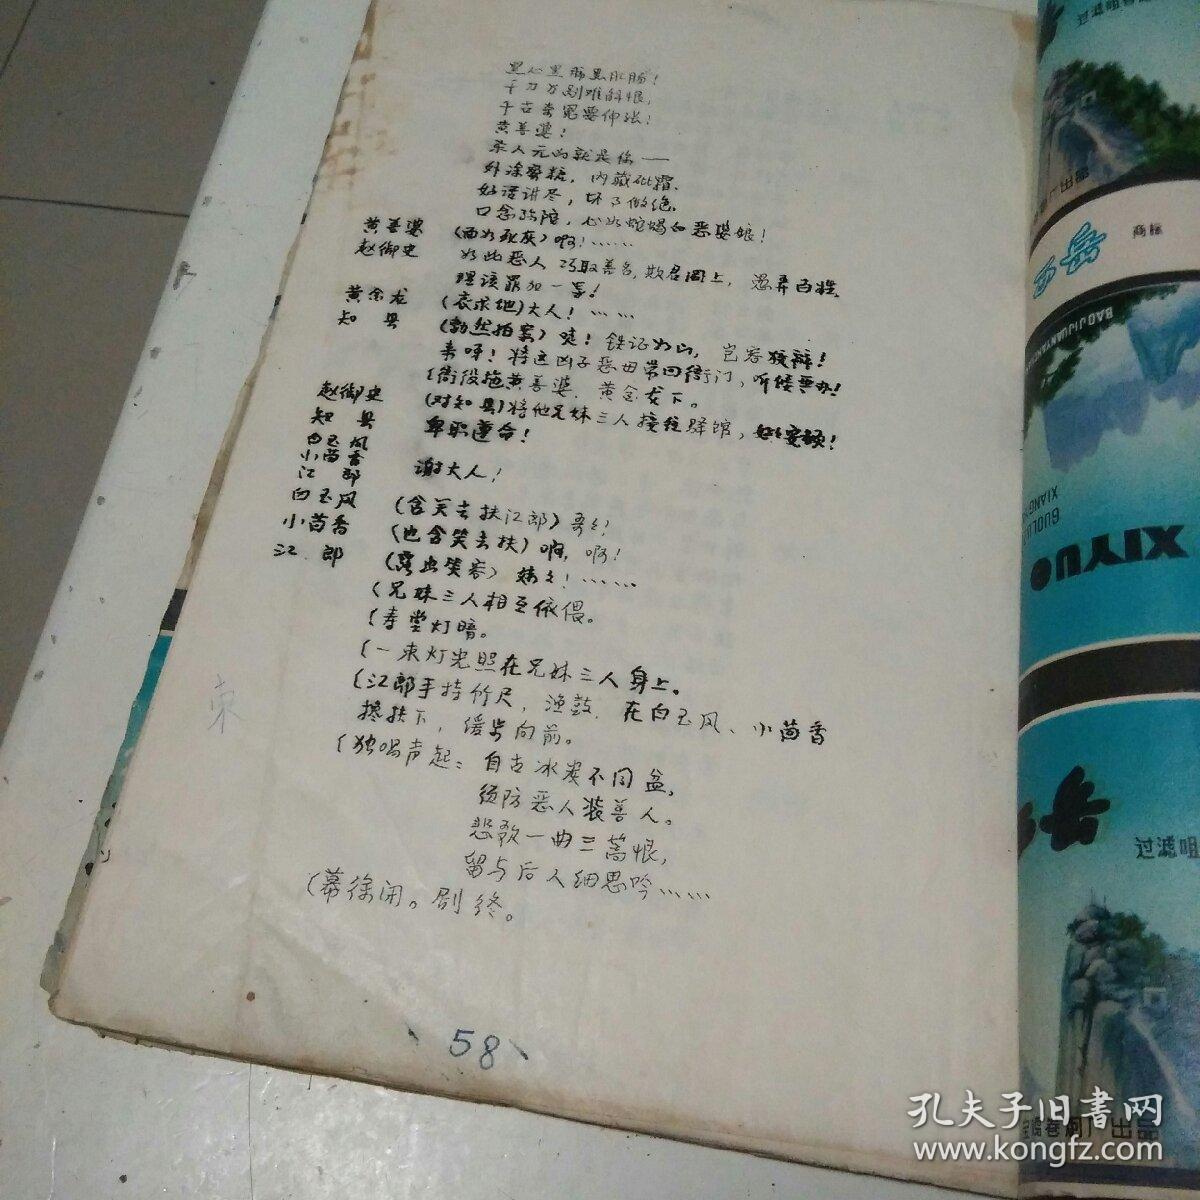 黑心黑肺黑肚肠！
千刀万剐难解恨，
千古奇冤要伸张！
黄善婆！
杀人元凶就是你——
外涂蜜糖，内藏砒霜，
好话讲尽，坏事做绝，
口念弥陀，心如蛇蝎的恶婆娘！
黄善婆 （面如死灰）啊！……
赵御史 如此恶人 巧取善名，欺君罔上，愚弄百姓，
理该罪加一等！
黄金龙 （哀求地）大人！……
知县 （勃然拍案）哇！铁证如山，岂容狡辩！
来呀！将这凶子恶母带回衙门，听候严办！
（衙役拖黄善婆、黄金龙下。
赵御史 （对知县）将他兄妹三人接往驿馆，好好安顿！
知县 卑职遵命！
白玉凤
小茴香
江郎 谢大人！
白玉凤 （含笑去扶江郎）哥々！
小茴香 （也含笑去扶）啊，啊！
江郎 （露出笑容）妹々！……
（兄妹三人相互依偎。
（寿堂灯暗。
（一束灯光照在兄妹三人身上。
（江郎手持竹尺，渔鼓，在白玉凤、小茴香
搀扶下，缓步向前。
（独唱声起：自古冰炭不同盆，
须防恶人装善人。
悲歌一曲三蒿恨，
留与后人细思吟……
（幕徐闭。剧终。
58
商标
西岳
BAOJIJUANYAN
XIANG
GUOLÜ
XIYUE
过滤咀
宝鸡卷烟厂出品
孔夫子旧书网
www.kongfz.com